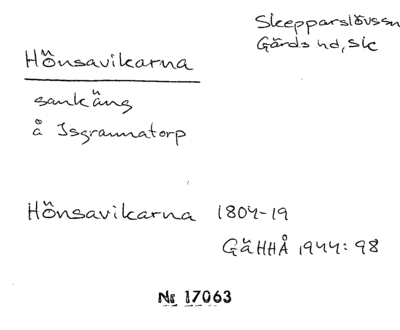 Skepparslövssn
Gärds hd, Sk
Hönsavikarna
sankäng
å Isgrannatorp
Hönsavikarna 1804-19
GäHHÅ 1944: 98
Nr 17063